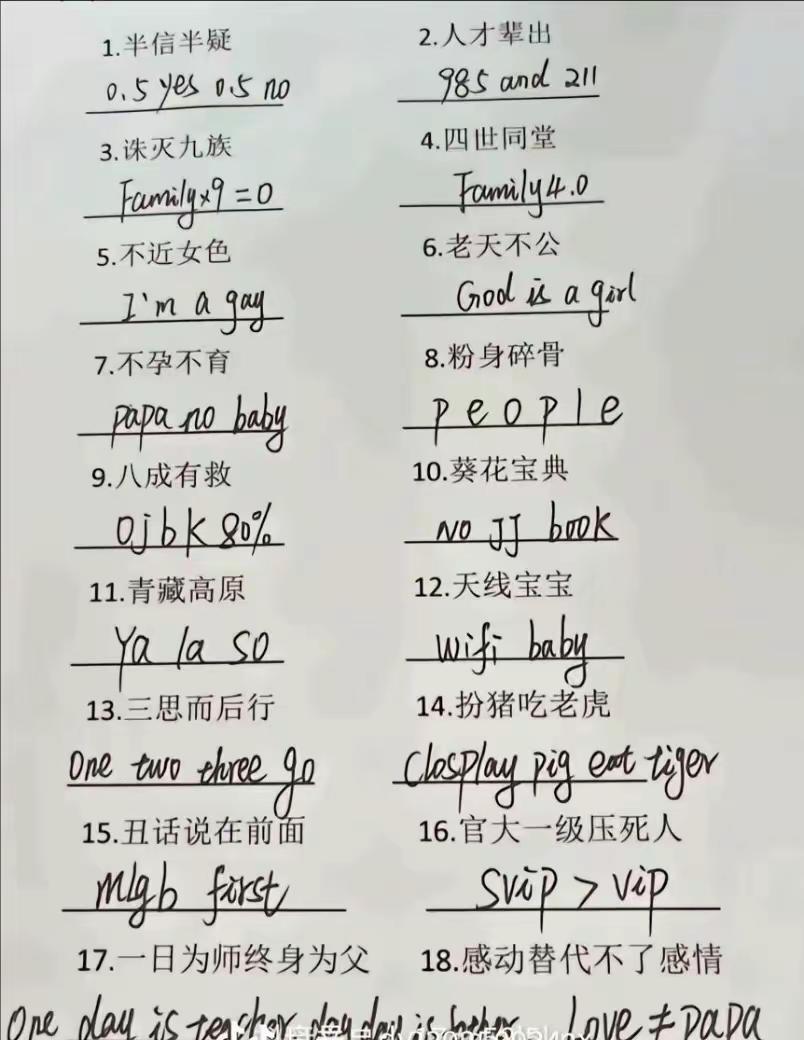 1.半信半疑 2.人才辈出
0.5 yes 0.5 no 985 and 211
3.诛灭九族 4.四世同堂
Family×9=0 Family4.0
5.不近女色 6.老天不公
I'm a gay God is a girl
7.不孕不育 8.粉身碎骨
papa no baby p e o p l e
9.八成有救 10.葵花宝典
Ojbk 80% NO JJ book
11.青藏高原 12.天线宝宝
Ya la so wifi baby
13.三思而后行 14.扮猪吃老虎
One two three go Closplay pig eat tiger
15.丑话说在前面 16.官大一级压死人
mlgb first svip > vip
17.一日为师终身为父 18.感动替代不了感情
One day is teacher day day is father Love ≠ papa